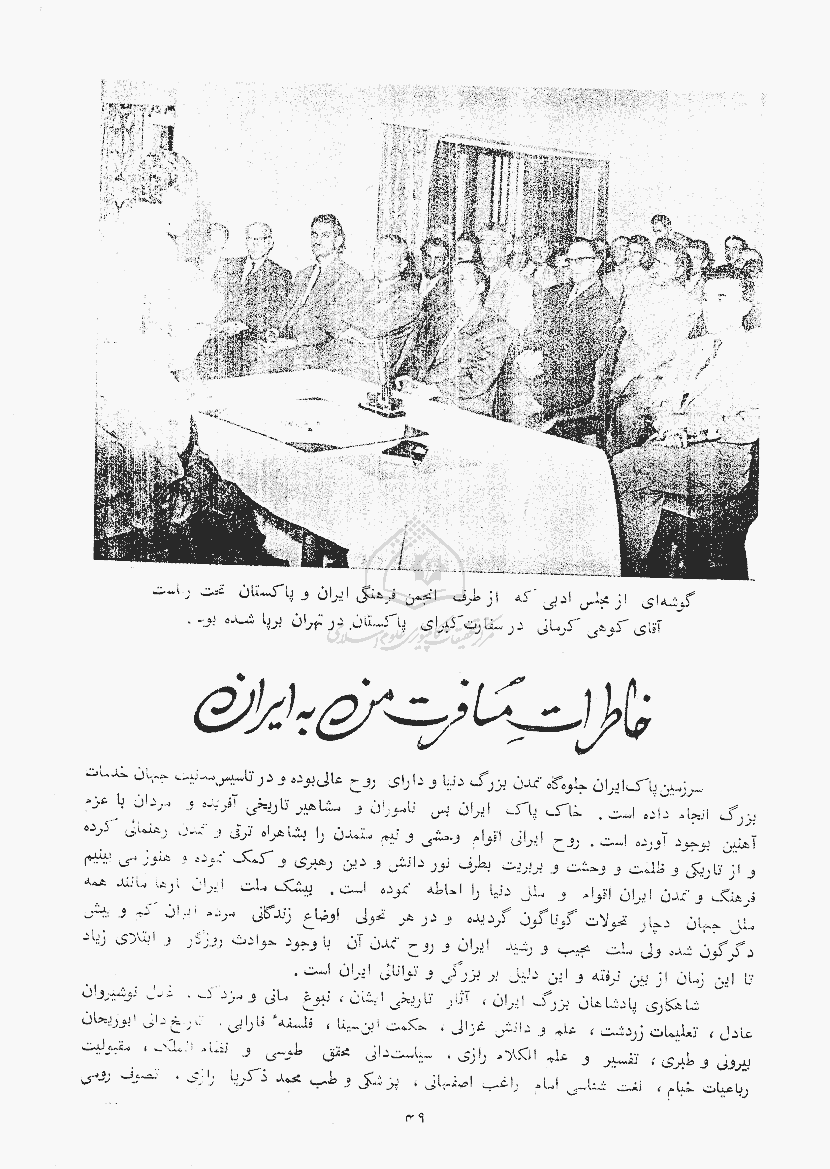 گوشه‌ای از مجلس ادبی که از طرف انجمن فرهنگی ایران و پاکستان تحت ریاست
آقای کوهی کرمانی در سفارت کبرای پاکستان در تهران برپا شده بود .
خاطرات مسافرت من به ایران
سرزمین پاک ایران جلوه‌گاه تمدن بزرگ دنیا و دارای روح عالی بوده و در تاسیس مدنیت جهان خدمات
بزرگ انجام داده است . خاک پاک ایران بس ناموران و مشاهیر تاریخی آفریده و مردان با عزم
آهنین بوجود آورده است . روح ایرانی اقوام وحشی و نیم متمدن را بشاهراه ترقی و تمدن رهنمائی کرده
و از تاریکی و ظلمت و وحشت و بربریت بطرف نور دانش و دین رهبری و کمک نموده و هنوز می بینیم
فرهنگ و تمدن ایران اقوام و ملل دنیا را احاطه نموده است . بیشک ملت ایران بارها مانند همه
ملل جهان دچار تحولات گوناگون گردیده و در هر تحولی اوضاع زندگانی مردم ایران کم و بیش
دگرگون شده ولی ملت نجیب و رشید ایران و روح تمدن آن با وجود حوادث روزگار و ابتلای زیاد
تا این زمان از بین نرفته و این دلیل بر بزرگی و توانائی ایران است .
شاهکاری پادشاهان بزرگ ایران ، آثار تاریخی ایشان ، نبوغ مانی و مزدک . عدل نوشیروان
عادل ، تعلیمات زردشت ، علم و دانش غزالی . حکمت ابن‌سینا ، فلسفهٔ فارابی . تاریخ دانی ابوریحان
بیرونی و طبری ، تفسیر و علم الکلام رازی . سیاست‌دانی محقق طوسی و نظام الملک ، مقبولیت
رباعیات خیام ، لغت شناسی امام راغب اصفهانی ، پزشکی و طب محمد ذکریا رازی . تصوف رومی
۴۹